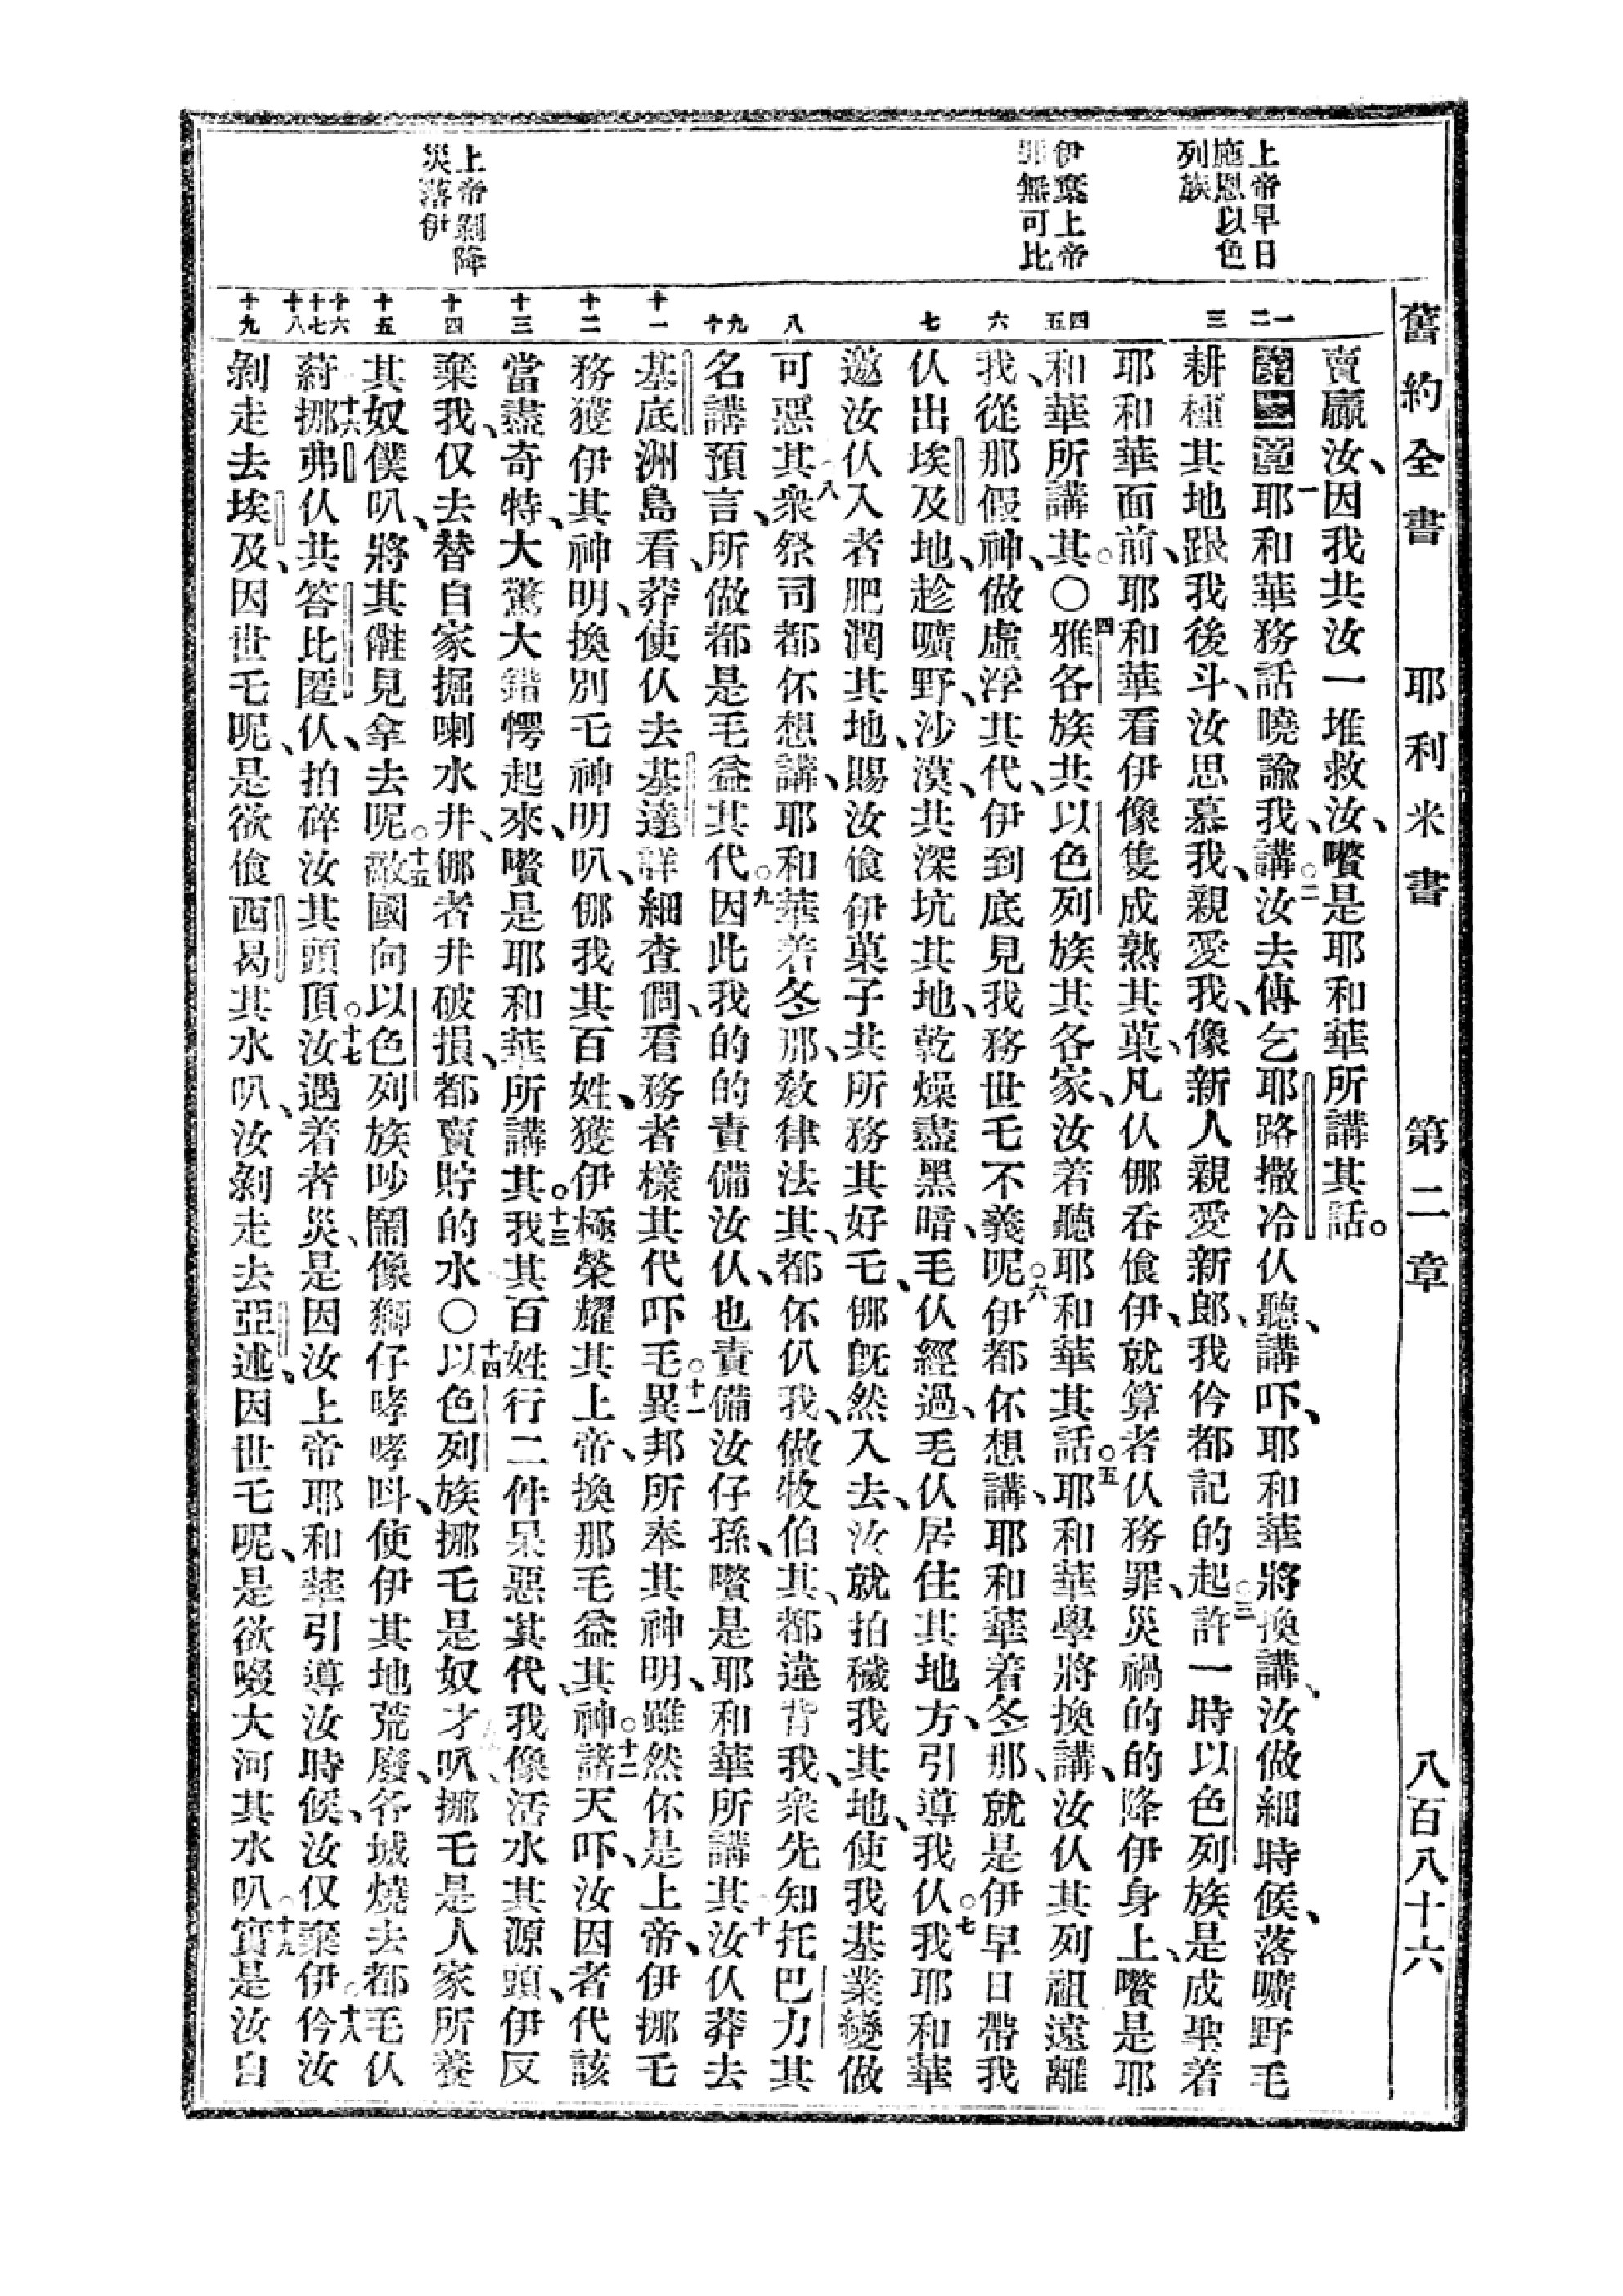 舊約全書 耶利米書 第二章 八百八十六
上帝早日
施恩以色
列族
伊棄上帝
罪無可比
上帝剿降
災落伊
一 二 三 四 五 六 七 八 九 十 十一 十二 十三 十四 十五 十六 十七 十八 十九
賣贏汝、因我共汝一堆救汝、嚽是耶和華所講其話。
第二章 一耶和華務話曉諭我、講、○二汝去傳乞耶路撒冷仈聽、講吓、耶和華將換講、汝做細時候、落曠野毛
耕種其地、跟我後斗、汝思慕我、親愛我、像新人親愛新郎、我伶都記的起、○三許一時以色列族是成聖着
耶和華面前、耶和華看伊像隻成熟其菓、凡仈挪吞飡伊、就算者仈務罪、災禍的的降伊身上、嚽是耶
和華所講其。○四雅各族、共以色列族其各家、汝着聽耶和華其話。○五耶和華學將換講、汝仈其列祖遠離
我、從那假神、做虛浮其代、伊到底見我務世乇不義呢、○六伊都伓想講、耶和華着冬那、就是伊早日帶我
仈出埃及地、趁曠野、沙漠、共深坑其地、乾燥盡黑暗、毛仈經過、毛仈居住其地方、引導我仈。○七我耶和華
邀汝仈入者肥潤其地、賜汝飡伊菓子、共所務其好乇、挪旣然入去、汝就拍穢我其地、使我基業變做
可惡其、八衆祭司都伓想講、耶和華着冬那、敎律法其、都伓仈我、做牧伯其、都違背我、衆先知托巴力其
名講預言、所做都是毛益其代。○九因此我的的責備汝仈、也責備汝仔孫、嚽是耶和華所講其、十汝仈莽去
基底洲島看、莽使仈去基達詳細查倜、看務者樣其代吓毛。○十一異邦所奉其神明、雖然伓是上帝、伊挪毛
務獲伊其神明、換別乇神明叭、挪我其百姓、獲伊極榮耀其上帝、換那毛益其神。○十二諸天吓、汝因者代該
當盡奇特、大驚大錯愕起來、嚽是耶和華所講其。○十三我其百姓行二件呆惡其代、我像活水其源頭、伊反
棄我、仅去替自家掘喇水井、挪者井破損、都賣貯的水○十四以色列族挪乇是奴才叭、挪毛是人家所養
其奴僕叭、將其儺見拿去呢。○十五敵國向以色列族吵鬧、像獅仔哮哮呌、使伊其地荒廢、各城燒去都毛仈
葤、十六挪弗仈共答比匿仈、拍碎汝其頭頂。○十七汝遇着者災、是因汝上帝耶和華引導汝時候、汝仅棄伊、○十八伶汝
剝走去埃及、因世乇呢、是欲飡西曷其水叭、汝剝走去亞述、因世乇呢、是欲啜大河其水叭、○十九實是汝自